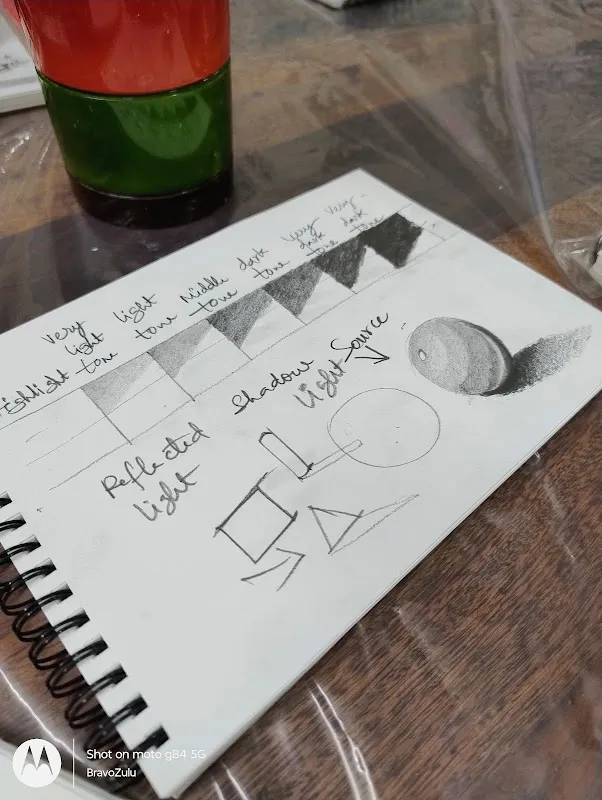 ighlight
Very
light
tone
light
tone
Middle
tone
dark
tone
Very
dark
tone
Very-
dark
tone
Reflected
light
Shadow
Light Source
Shot on moto g84 5G
BravoZulu